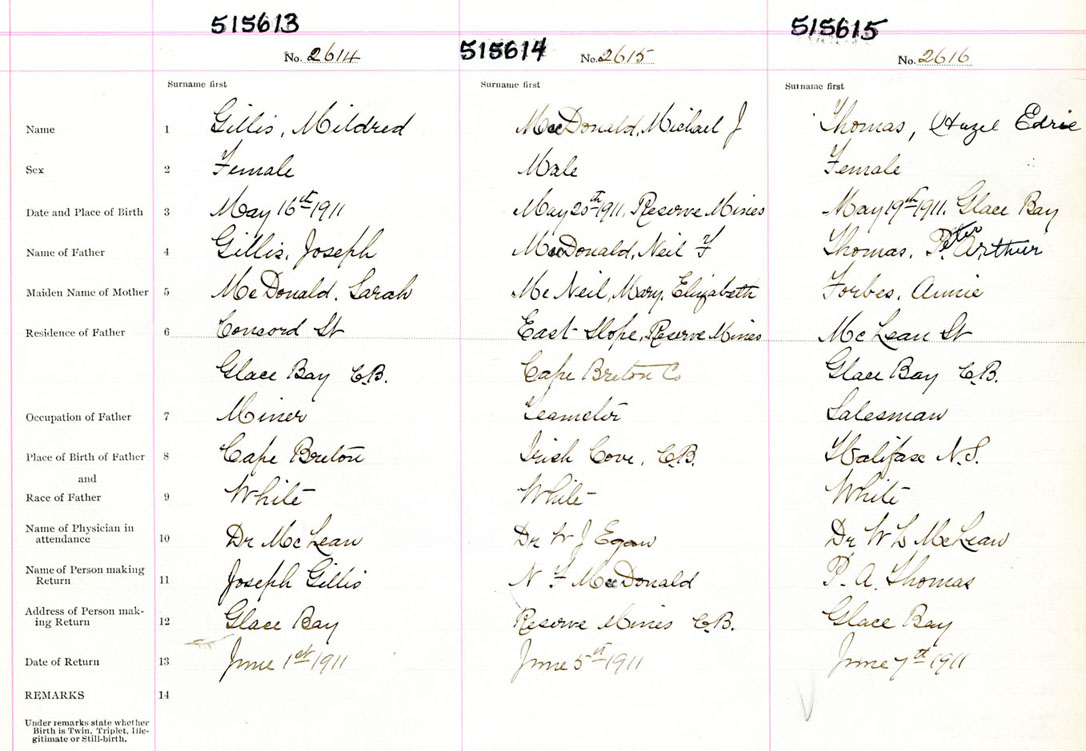 515613
515614
515615
No. 2614
No. 2615
No. 2616
Surname first
Surname first
Surname first
Name 1 Gillis, Mildred MacDonald, Michael J Thomas, Hazel Edrie
Sex 2 Female Male Female
Date and Place of Birth 3 May 16th 1911 May 20th 1911. Reserve Mines May 19th 1911. Glace Bay
Name of Father 4 Gillis, Joseph MacDonald, Neil F Thomas, Peter Arthur
Maiden Name of Mother 5 McDonald, Sarah McNeil, Mary Elizabeth Forbes, Annie
Residence of Father 6 Concord St East Slope, Reserve Mines McLean St
Glace Bay C.B. Cape Breton Co Glace Bay C.B.
Occupation of Father 7 Miner Teamster Salesman
Place of Birth of Father 8 Cape Breton Irish Cove, C.B. Halifax N.S.
and
Race of Father 9 White White White
Name of Physician in
attendance 10 Dr McLean Dr W J Egan Dr W L McLean
Name of Person making
Return 11 Joseph Gillis N F MacDonald P. A. Thomas
Address of Person mak-
ing Return 12 Glace Bay Reserve Mines C.B. Glace Bay
Date of Return 13 June 1st 1911 June 5th 1911 June 7th 1911
REMARKS 14
Under remarks state whether
Birth is Twin, Triplet, Ille-
gitimate or Still-birth.